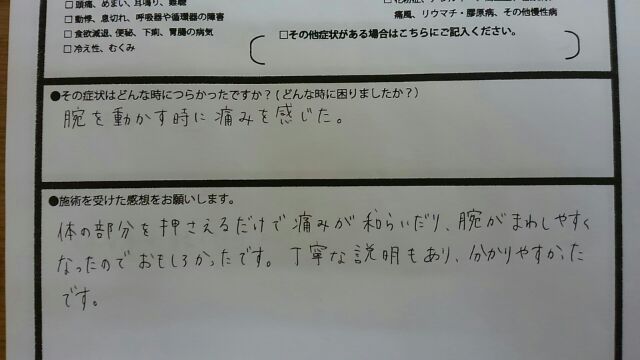 □頭痛、めまい、耳鳴り、難聴
□動悸、息切れ、呼吸器や循環器の障害
□食欲減退、便秘、下痢、胃腸の病気
□冷え性、むくみ
痛風、リウマチ・膠原病、その他慢性病
□その他症状がある場合はこちらにご記入ください。
●その症状はどんな時につらかったですか？(どんな時に困りましたか？)
腕を動かす時に痛みを感じた。
●施術を受けた感想をお願いします。
体の部分を押さえるだけで痛みが和らいだり、腕がまわしやすく
なったのでおもしろかったです。丁寧な説明もあり、分かりやすかった
です。